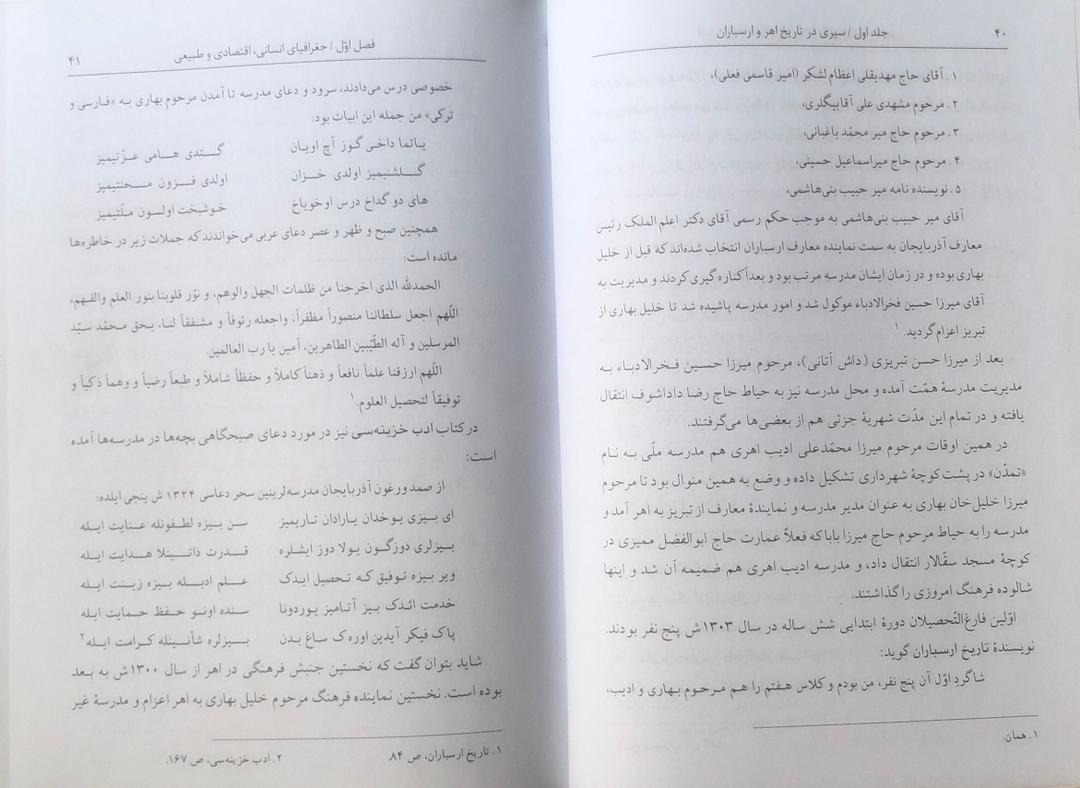 ۴۰ جلد اول / سیری در تاریخ اهر و ارسباران
۱. آقای حاج مهدیقلی اعظام لشکر (امیر قاسمی فعلی)،
۲. مرحوم مشهدی علی آقابیگلری،
۳. مرحوم حاج میر محمّد باغبانی،
۴. مرحوم حاج میراسماعیل حسینی،
۵. نویسنده نامه میر حبیب بنی‌هاشمی،
آقای میر حبیب بنی‌هاشمی به موجب حکم رسمی آقای دکتر اعلم الملک رئیس
معارف آذربایجان به سمت نماینده معارف ارسباران انتخاب شده‌اند که قبل از خلیل
بهاری بوده و در زمان ایشان مدرسه مرتب بود و بعداً کناره گیری کردند و مدیریت به
آقای میرزا حسین فخرالادباء موکول شد و امور مدرسه پاشیده شد تا خلیل بهاری از
تبریز اعزام گردید.۱
بعد از میرزا حسن تبریزی (داش آتانی)، مرحوم میرزا حسین فخرالادباء به
مدیریت مدرسهٔ همّت آمده و محل مدرسه نیز به حیاط حاج رضا داداشوف انتقال
یافته و در تمام این مدّت شهریهٔ جزئی هم از بعضی‌ها می‌گرفتند.
در همین اوقات مرحوم میرزا محمّدعلی ادیب اهری هم مدرسه ملّی به نام
«تمدّن» در پشت کوچهٔ شهرداری تشکیل داده و وضع به همین منوال بود تا مرحوم
میرزا خلیل‌خان بهاری به عنوان مدیر مدرسه و نمایندهٔ معارف از تبریز به اهر آمد و
مدرسه را به حیاط مرحوم حاج میرزا بابا که فعلاً عمارت حاج ابوالفضل ممیزی در
کوچهٔ مسجد سقّالار انتقال داد، و مدرسه ادیب اهری هم ضمیمه آن شد و اینها
شالوده فرهنگ امروزی را گذاشتند.
اوّلین فارغ‌التّحصیلان دورهٔ ابتدایی شش ساله در سال ۱۳۰۳ش پنج نفر بودند.
نویسندهٔ تاریخ ارسباران گوید:
شاگردِ اوّل آن پنج نفر، من بودم و کلاس هفتم را هم مرحوم بهاری و ادیب،
۱. همان.
فصل اوّل / جغرافیای انسانی، اقتصادی و طبیعی ۴۱
خصوصی درس می‌دادند، سرود و دعای مدرسه تا آمدن مرحوم بهاری به «فارسی و
ترکی» من جمله این ابیات بود:
یاتما داخی گوز آچ اویان گتدی هامی عزّتیمیز
گلشنیمیز اولدی خزان اولدی فزون محنتیمیز
های دو گداخ درس اوخویاخ خوشبخت اولسون ملّتیمیز
همچنین صبح و ظهر و عصر دعای عربی می‌خواندند که جملات زیر در خاطره‌ها
مانده است:
الحمدلله الذی اخرجنا من ظلمات الجهل والوهم، و نوّر قلوبنا بنور العلم والفهم،
اللّهم اجعل سلطاننا منصوراً مظفراً، واجعله رئوفاً و مشفقاً لنا، بحق محمّد سیّد
المرسلین و آله الطّیّبین الطاهرین، آمین یا رب العالمین.
اللّهم ارزقنا علماً نافعاً و ذهناً کاملاً و حفظاً شاملاً و طبعاً رضیاً و وهماً ذکیاً و
توفیقاً لتحصیل العلوم.۱
در کتاب ادب خزینه‌سی نیز در مورد دعای صبحگاهی بچه‌ها در مدرسه‌ها آمده
است:
از صمد ورغون آذربایجان مدرسه‌لرینین سحر دعاسی ۱۳۲۴ ش ینجی ایلده:
ای بیزی یوخدان یارادان تاریمیز سن بیزه لطفونله عنایت ایله
بیزلری دوزگون یولا دوز ایشلره قدرت ذاتینلا هدایت ایله
ویر بیزه توفیق که تحصیل ایدک علم ادبله بیزه زینت ایله
خدمت ائدک بیز آتامیز یوردونا سنده اونو حفظ حمایت ایله
پاک فیکر آیدین اوره‌ک ساغ بدن بیزلره شأنینله کرامت ایله۲
شاید بتوان گفت که نخستین جنبش فرهنگی در اهر از سال ۱۳۰۰ش به بعد
بوده است. نخستین نماینده فرهنگ مرحوم خلیل بهاری به اهر اعزام و مدرسهٔ غیر
۱. تاریخ ارسباران، ص ۸۴. ۲. ادب خزینه‌سی، ص ۱۶۷.